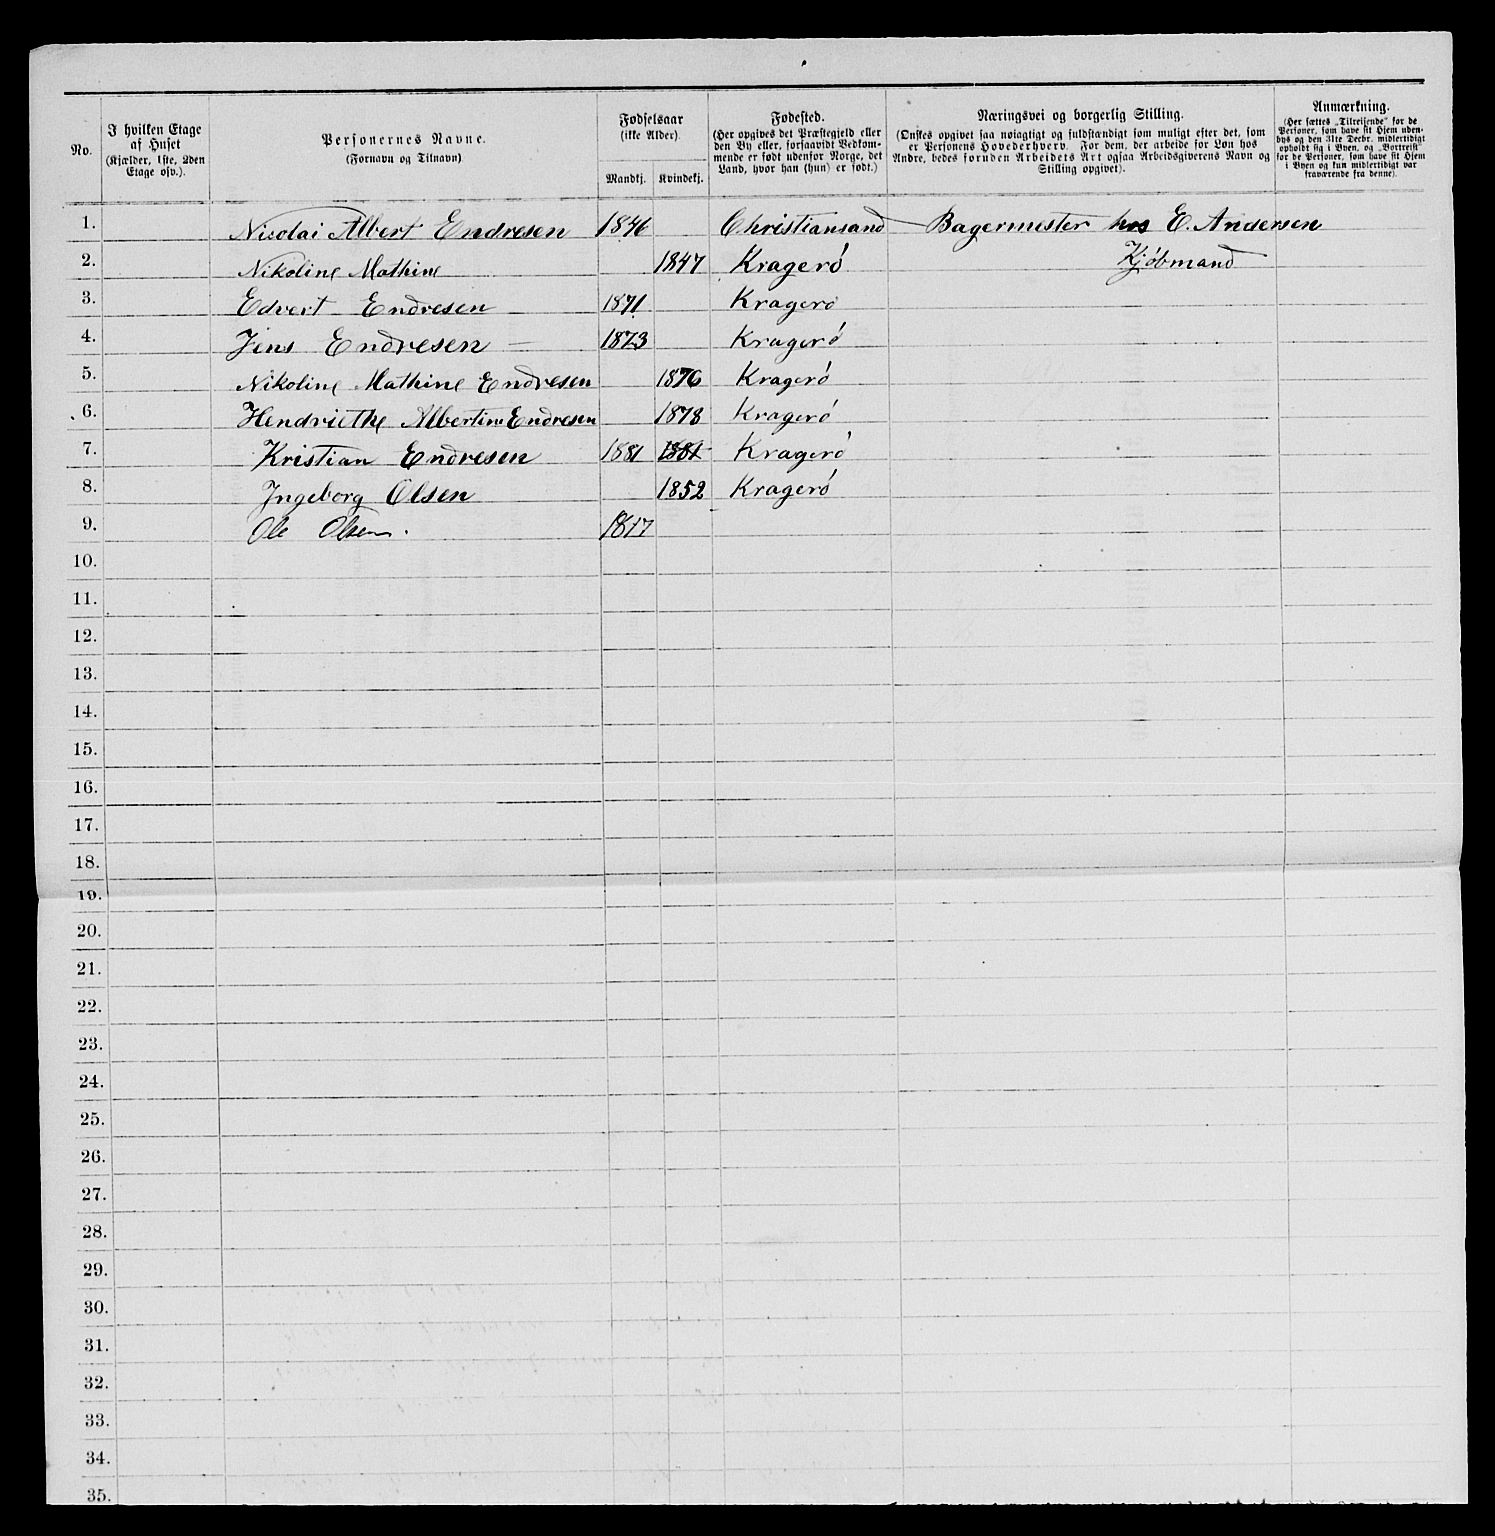 No.
I hvilken Etage af Huset (Kjælder, 1ste, 2den Etage osv.).
Personernes Navne. (Fornavn og Tilnavn)
Fødselsaar (ikke Alder).
Mandkj. Kvindekj.
Fødested. (Her opgives det Præstegjeld eller den By eller, forsaavidt Vedkommende er født udenfor Norge, det Land, hvor han (hun) er født.)
Næringsvei og borgerlig Stilling. (Ønskes opgivet saa nøiagtigt og fuldstændigt som muligt efter det, som er Personens Hovederhverv. For dem, der arbeide for Løn hos Andre, bedes foruden Arbeidets Art ogsaa Arbeidsgiverens Navn og Stilling opgivet).
Anmærkning. (Her sættes „Tilreisende“ for de Personer, som have sit Hjem udenbys og den 31te Decbr. midlertidigt opholdt sig i Byen, og „Bortreist“ for de Personer, som have sit Hjem i Byen og kun midlertidigt var fraværende fra denne).
1. Nicolai Albert Endresen 1846 Christiansand Bagermester hos E. Andersen
2. Nikoline Mathine 1847 Kragerö Kjöbmand
3. Edvert Endresen 1871 Kragerö
4. Jens Endresen 1873 Kragerö
5. Nikoline Mathine Endresen 1876 Kragerö
6. Hendriethe Albertine Endresen 1878 Kragerö
7. Kristian Endresen 1881 1881 Kragerö
8. Ingeborg Olsen 1852 Kragerö
9. Ole Olsen. 1817
10.
11.
12.
13.
14.
15.
16.
17.
18.
19.
20.
21.
22.
23.
24.
25.
26.
27.
28.
29.
30.
31.
32.
33.
34.
35.